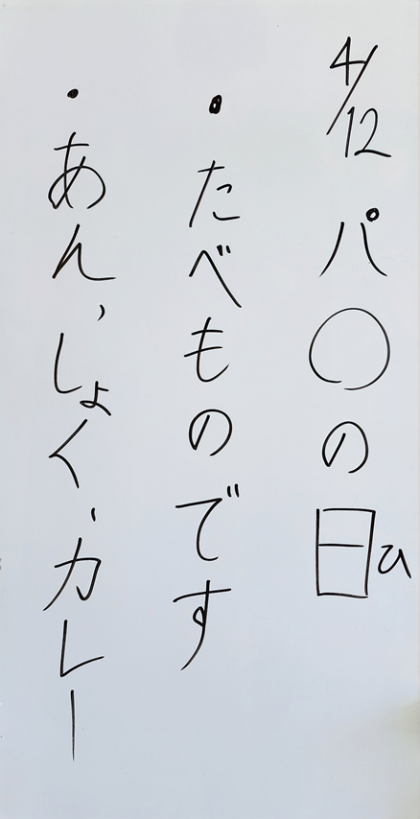 4/12 パ〇の日ひ
・たべものです
・あん、しょく、カレー